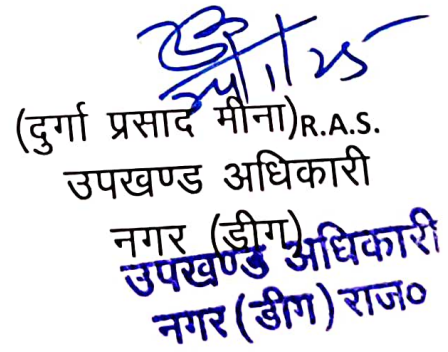 (दुर्गा प्रसाद मीना)R.A.S.
उपखण्ड अधिकारी
नगर (डीग)
उपखण्ड अधिकारी
नगर (डीग) राज०